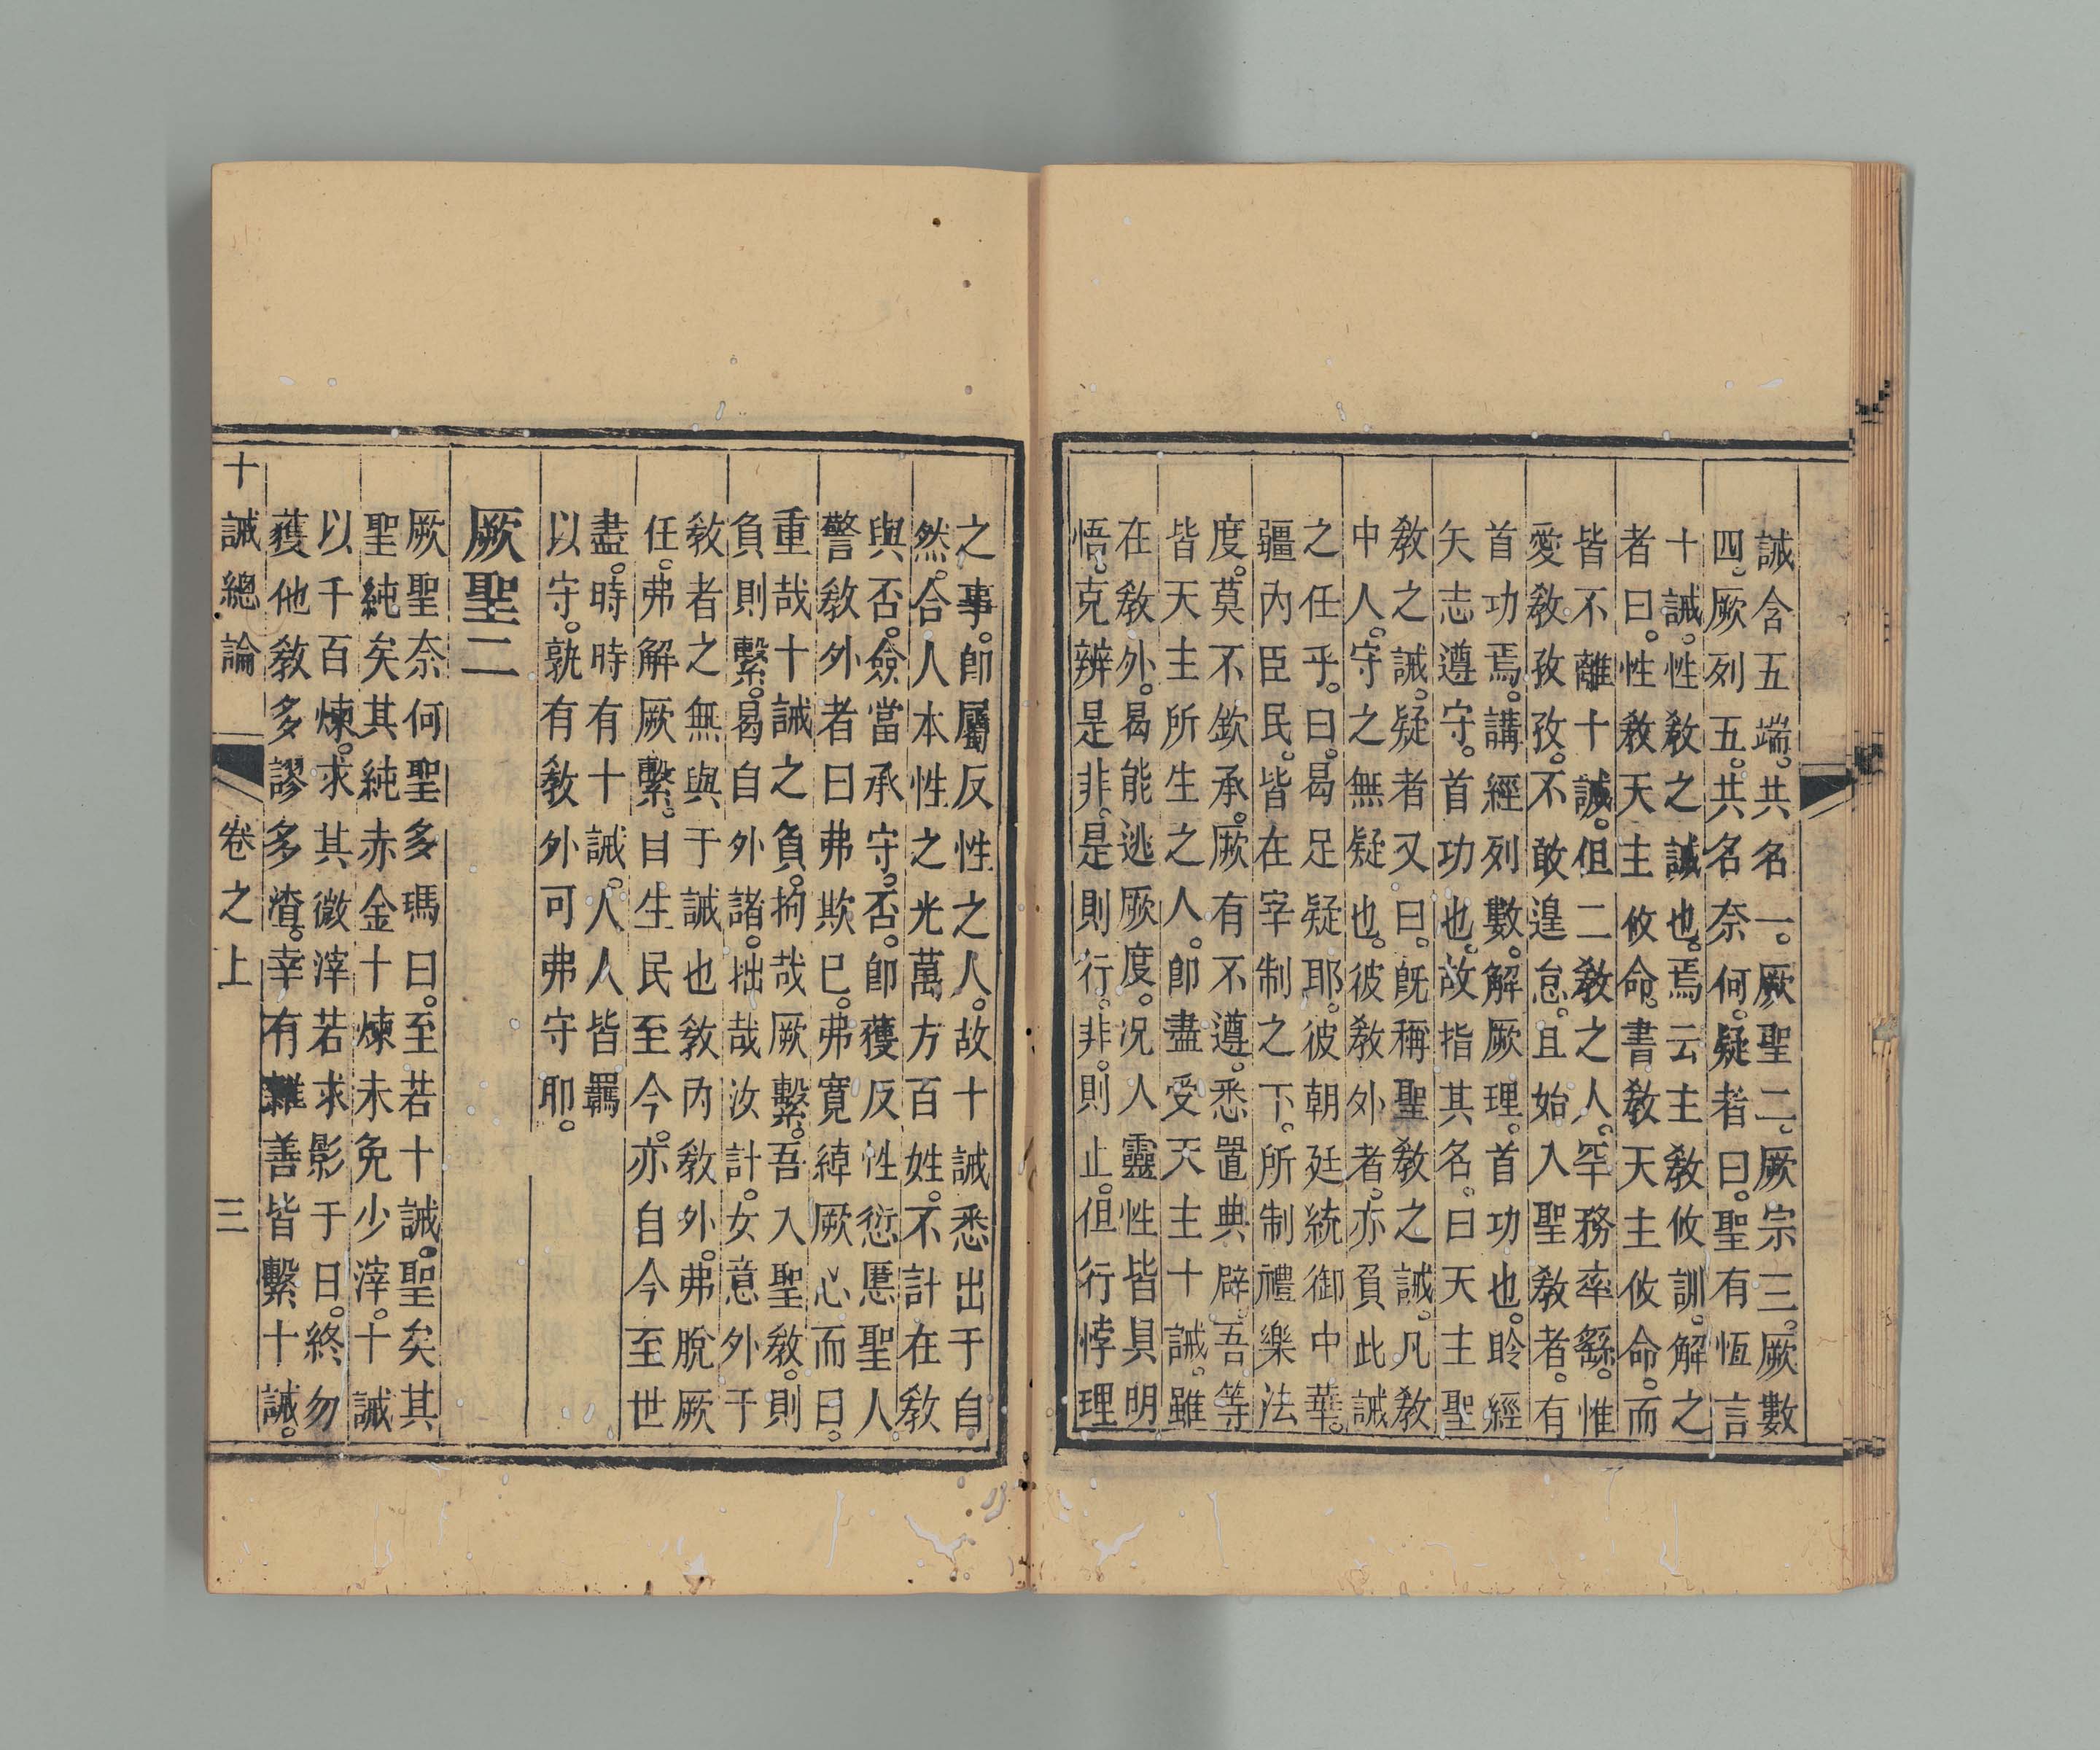 誡含五端。共名一。厥聖二。厥宗三。厥數
四。厥列五。共名奈何。疑者曰。聖有恆言
十誡。性敎之誡也。焉云主敎攸訓。解之
者曰。性敎天主攸命。書敎天主攸命。而
皆不離十誡。但二敎之人。罕務率繇。惟
愛敎孜孜。不敢遑怠。且始入聖敎者。有
首功焉。講經列數。解厥理。首功也。聆經
矢志遵守。首功也。故指其名。曰天主聖
敎之誡。疑者又曰。旣稱聖敎之誡。凡敎
中人。守之無疑也。彼敎外者。亦負此誡
之任乎。曰。曷足疑耶。彼朝廷統御中華。
疆內臣民。皆在宰制之下。所制禮樂法
度。莫不欽承。厥有不遵。悉置典辟。吾等
皆天主所生之人。卽盡受天主十誡。雖
在敎外。曷能逃厥度。况人靈性皆具明
悟。克辨是非。是則行。非。則止。但行悖理
之事。卽屬反性之人。故十誡悉出于自
然。合人本性之光萬方百姓。不計在敎
與否。僉當承守。否。卽獲反性愆慝聖人
警敎外者曰弗欺已。弗寬綽厥心而曰。
重哉十誡之負。拘哉厥繫。吾入聖敎。則
負則繫。曷自外諸。拙哉汝計。女意外于
敎者之無與于誡也敎內敎外。弗脫厥
任。弗解厥繫。自生民至今。亦自今至世
盡。時時有十誡。人人皆羈
以守。孰有敎外可弗守耶。
厥聖二
厥聖奈何聖多瑪曰。至若十誡。聖矣其
聖純矣其純赤金十煉未免少滓。十誡
以千百煉。求其微滓若求影于日。終勿
獲他敎多謬多渣。幸有雜善皆繫十誡。
十誡總論 卷之上 三